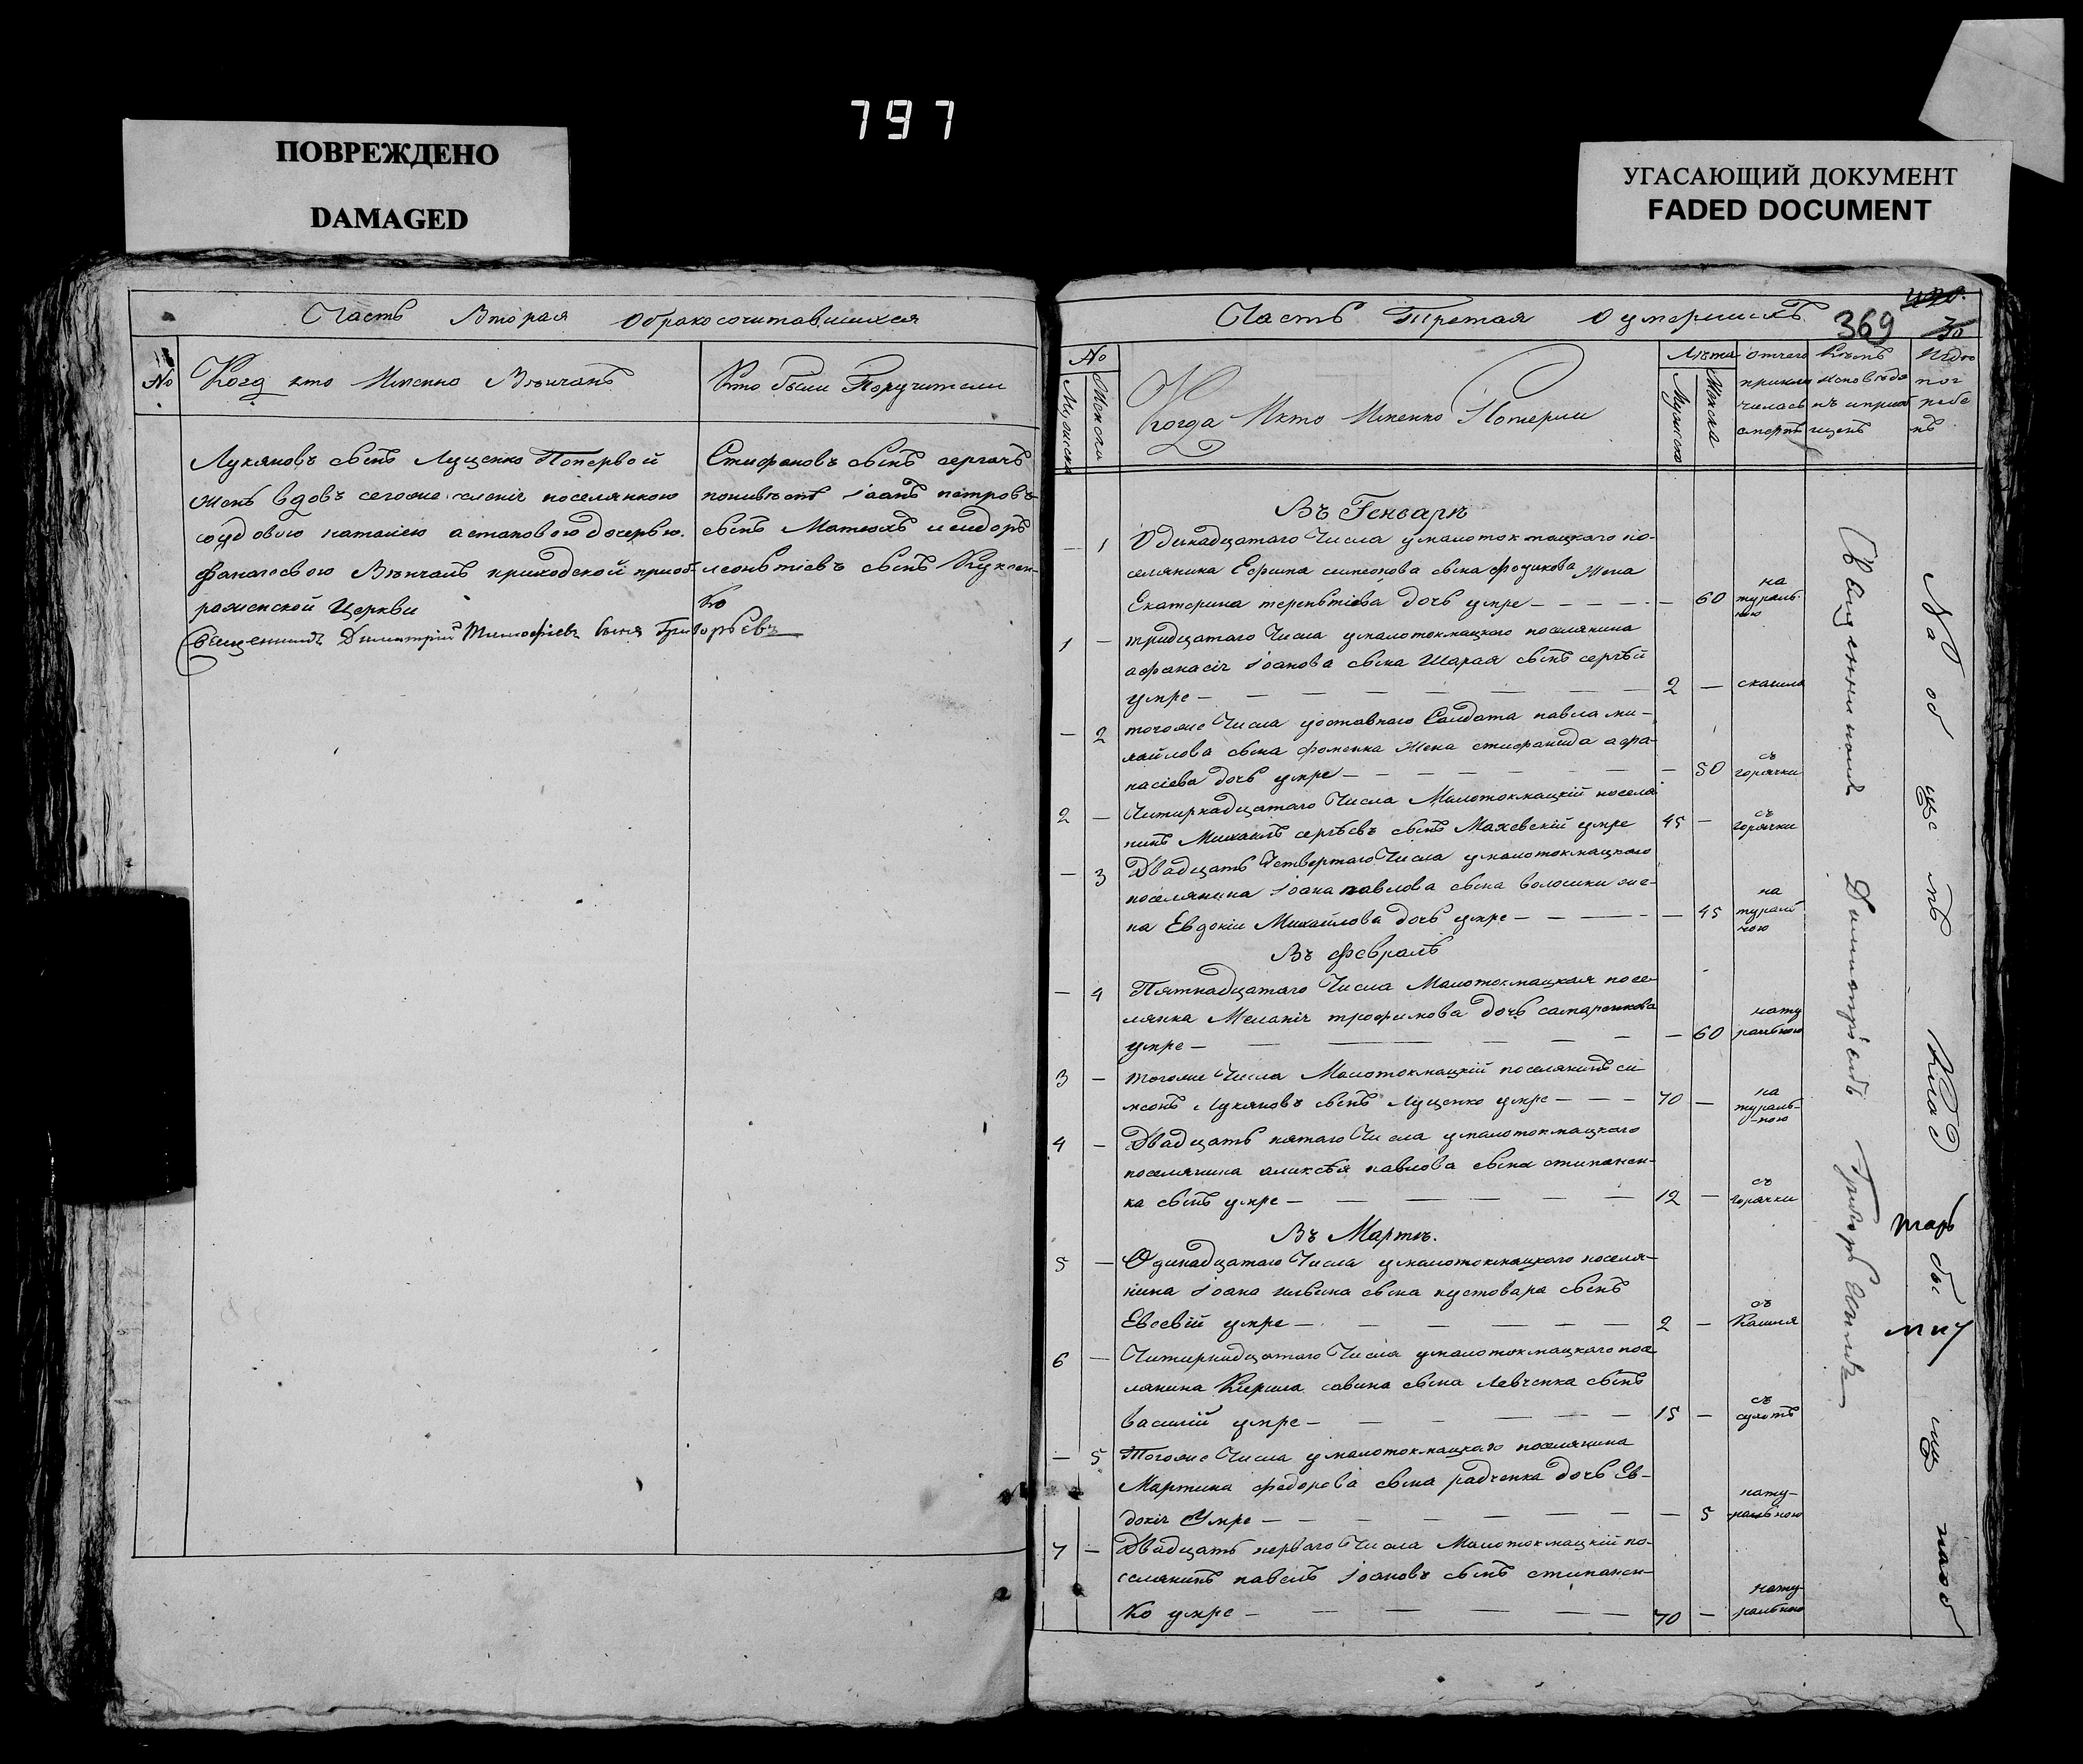 797
ПОВРЕЖДЕНО
DAMAGED
УГАСАЮЩИЙ ДОКУМЕНТ
FADED DOCUMENT
Часть Вторая Обракосочитавшихся
№
Когда кто Имянно Венчанъ
Кто были Поручители
Лукяновъ сынъ Луценко Поперво й
женъ вдовъ сегоже селенія поселянкою
вдовою наталіею астаповою дочерью
фанасевою Венчалъ приходской приоб-
раженской Церкви
Священникъ Димитрий Тимофіевъ сынъ Григорьевъ
Стифановъ сынъ сергачъ
іоанъ петровъ
сынъ Матюхъ исидоръ
леоньтіевъ сынъ Куксен-
ко
Часть Третая О умершихъ
369
30
№
Мужска
Женска
Когда Икто Имянно Померли
Лѣта
Мужеска
Женска
отчего
приклю
чилась
смерть
Кѣмъ
исповѣда
нъ иприоб
щенъ
Игдѣ
пог
ребе
нъ
Въ Генварѣ
— 1 Одинадцатаго Числа умалотокмацкого по-
селянина Ефима симеонова сына Жена
Екатерина тереньтіева дочь умре — 60 на туральною
1 — тридцатаго Числа умалотокмацкого поселянина
афанасія іоанова сына Шарая сынъ сергѣй
умре — 2 — скашля
— 2 тогоже Числа уоставнаго Салдата павла ми-
хайлова сына фоменка Жена стифанида афа-
насіева дочь умре — 50 съ горячки
2 — Читирнадцатаго Числа Малотокмацкій поселя
нинъ Михаилъ сергѣевъ сынъ Маховскій умре 45 — съ горячки
— 3 Двадцать Четвертаго Числа умалотокмацкаго
поселянина іоана павлова сына волошки же-
на Евдокія Михайлова дочь умре — 45 на турал ною
Въ февралѣ
— 4 Пятнадцатаго Числа Малотокмацкая посе-
лянка Меланія трофимова дочь самаренкова
умре — 60 нату ральною
3 — тогоже Числа Малотокмацкій поселянинъ си
меонъ Лукяновъ сынъ Луценко умре 70 — на тураль-ною
4 — Двадцать пятаго Числа умалотокмацкаго
поселянина аликсѣя павлова сына стипанен-
ка сынъ умре 12 — съ горячки
Въ Мартѣ.
5 — Одинадцатаго Числа умалотокмацкаго поселя-
нина іоана ильина сына пустовара сынъ
Евсевій умре — 2 — съ Кашля
6 — Читирнадцатаго Числа умалотокмацкаго посе
лянина Кирила савина сына Левченка сынъ
василій умре — 15 — съ сухотъ
— 5 Тогоже Числа умалотокмацкаго поселянина
Мартина федорова сына радченка дочь Ев-
докія Умре — 5 нату-ральною
7 — Двадцать перваго Числа Малотокмацкій по-
селянинъ павелъ іоановъ сынъ стипанен-
ко умре — 70 — нату ральною
Священникомъ Димитріемъ Григорьевымъ
На об ще мъ Клад